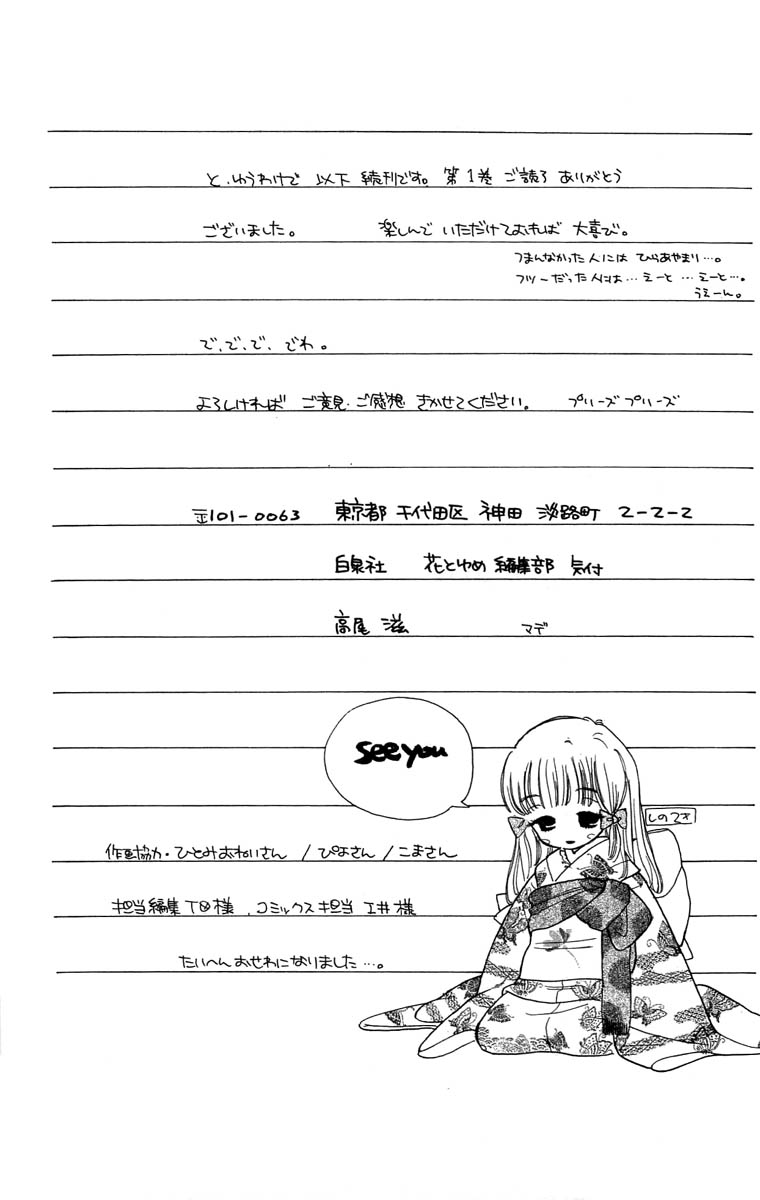 と、ゆうわけで 以下 続刊です。第1巻 ご読了 ありがとう
ございました。 楽しんで いただけておれば 大喜び。
つまんなかった人には ひらあやまり…。
フツーだった人には…えーと…えーと…。
うえーん。
で、で、で、でわ。
よろしければ ご意見・ご感想 きかせてください。 プリーズプリーズ
〒101-0063 東京都 千代田区 神田 淡路町 2-2-2
白泉社 花とゆめ 編集部 気付
高尾 滋 マデ
see you
しのつき
作画協力・ひとみおねいさん/ぴよさん/こまさん
担当編集 T様、コミックス担当 工井様
たいへん おせわになりました…。